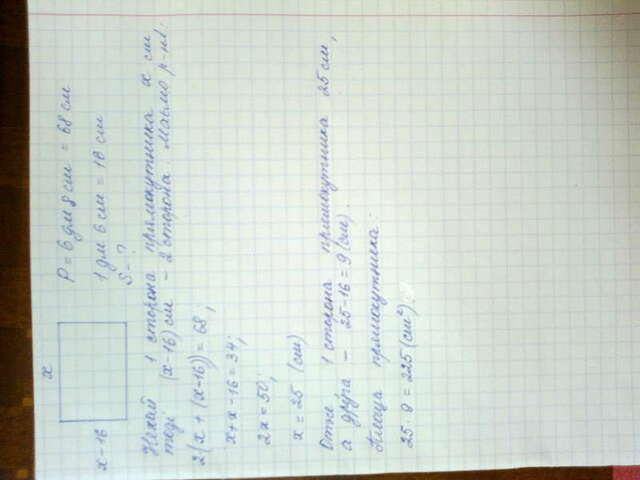 x
x-16
P = 6 дм 8 см = 68 см
1 дм 6 см = 16 см
S - ?
Нехай 1 сторона прямокутника x см
тоді (x-16) см - 2 сторона. Маємо р-ня:
2(x + (x-16)) = 68;
x+x-16=34;
2x=50;
x = 25 (см)
Отже, 1 сторона прямокутника 25 см,
а друга - 25-16=9 (см).
Площа прямокутника:
25·9=225 (см²)